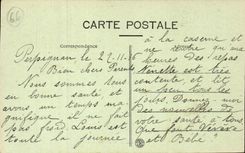 66
CARTE POSTALE
Correspondance
Perpignan le 29-11-16
Bien chers Parents
Nous sommes tous
en bonne santé et
avons un temps ma
gnifique, il ne fait
pas froid. Louis est
toute la journée
à la caserne et
ne qu'aux
heures des repas
Ninette est très
contente et lit
un peu tous les
jours. Donnez moi
des nouvelles de
votre santé à tous
Que font
et Bébé